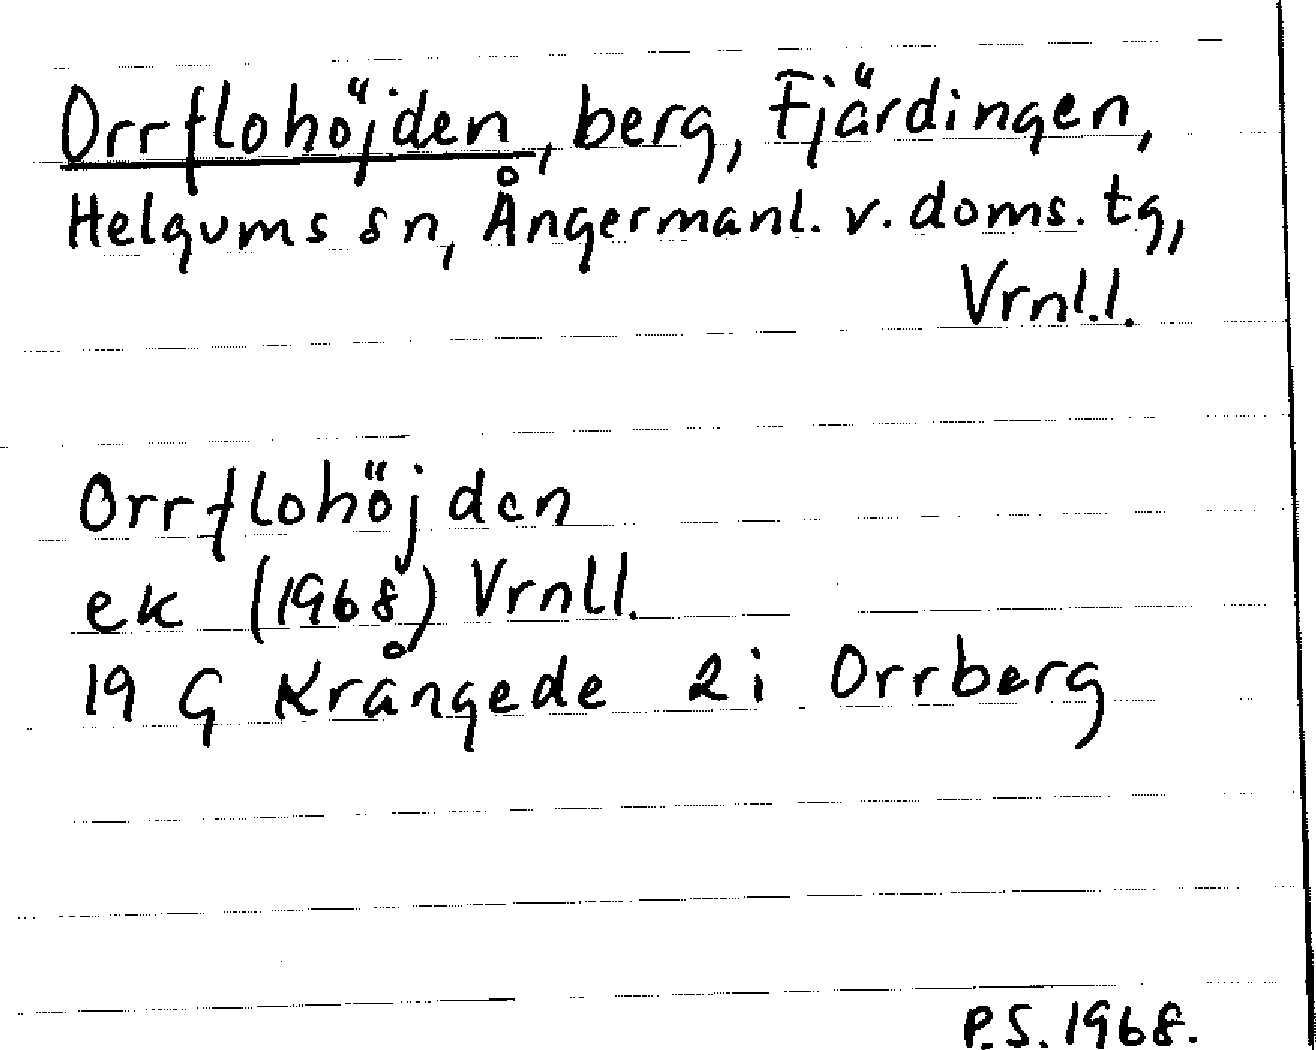 Orrflohöjden, berg, Fjärdingen,
Helgums sn, Ångermanl. v. doms. tg,
Vrnl.l.
Orrflohöjden
ek (1968) Vrnll.
19 G Krångede 2i Orrberg
P.S. 1968.